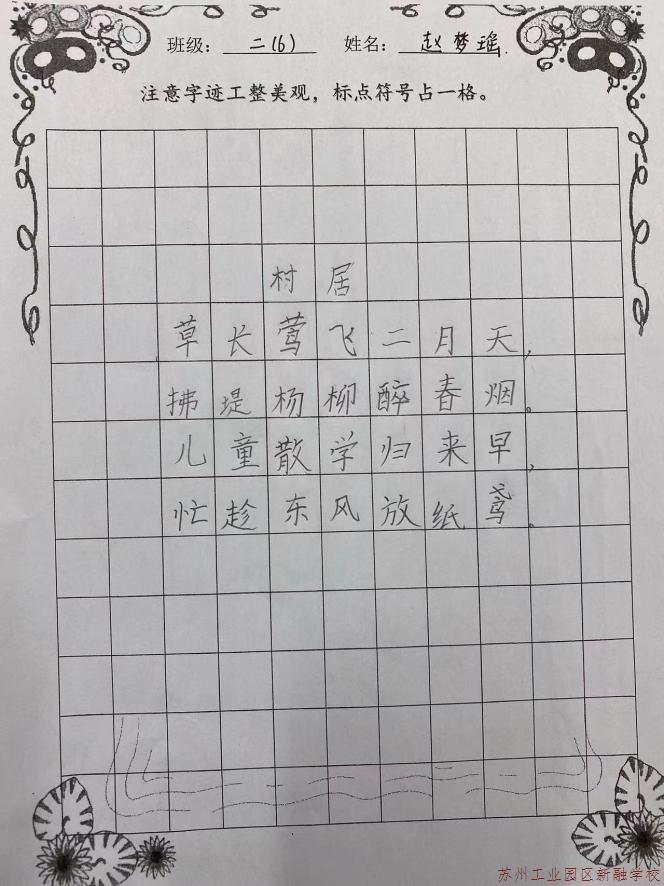 班级：二（6） 姓名：赵梦瑶
注意字迹工整美观，标点符号占一格。
村居
草长莺飞二月天，
拂堤杨柳醉春烟。
儿童散学归来早，
忙趁东风放纸鸢。
苏州工业园区新融学校